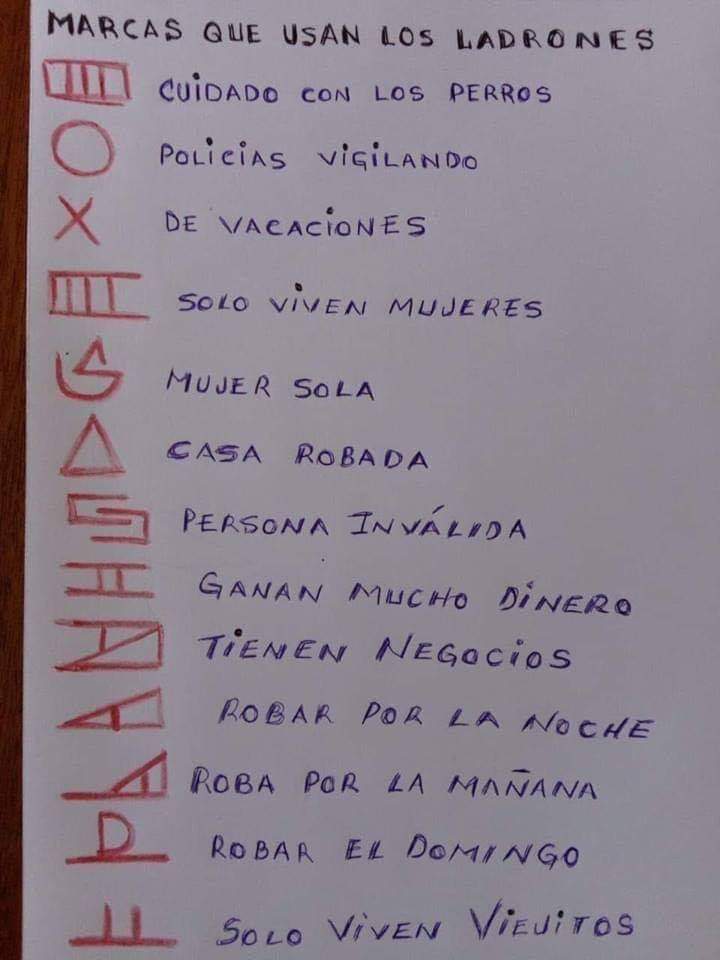 MARCAS QUE USAN LOS LADRONES
CUIDADO CON LOS PERROS
POLICIAS VIGILANDO
DE VACACIONES
SOLO VIVEN MUJERES
MUJER SOLA
CASA ROBADA
PERSONA INVÁLIDA
GANAN MUCHO DINERO
TIENEN NEGOCIOS
ROBAR POR LA NOCHE
ROBA POR LA MAÑANA
ROBAR EL DOMINGO
SOLO VIVEN VIEJITOS